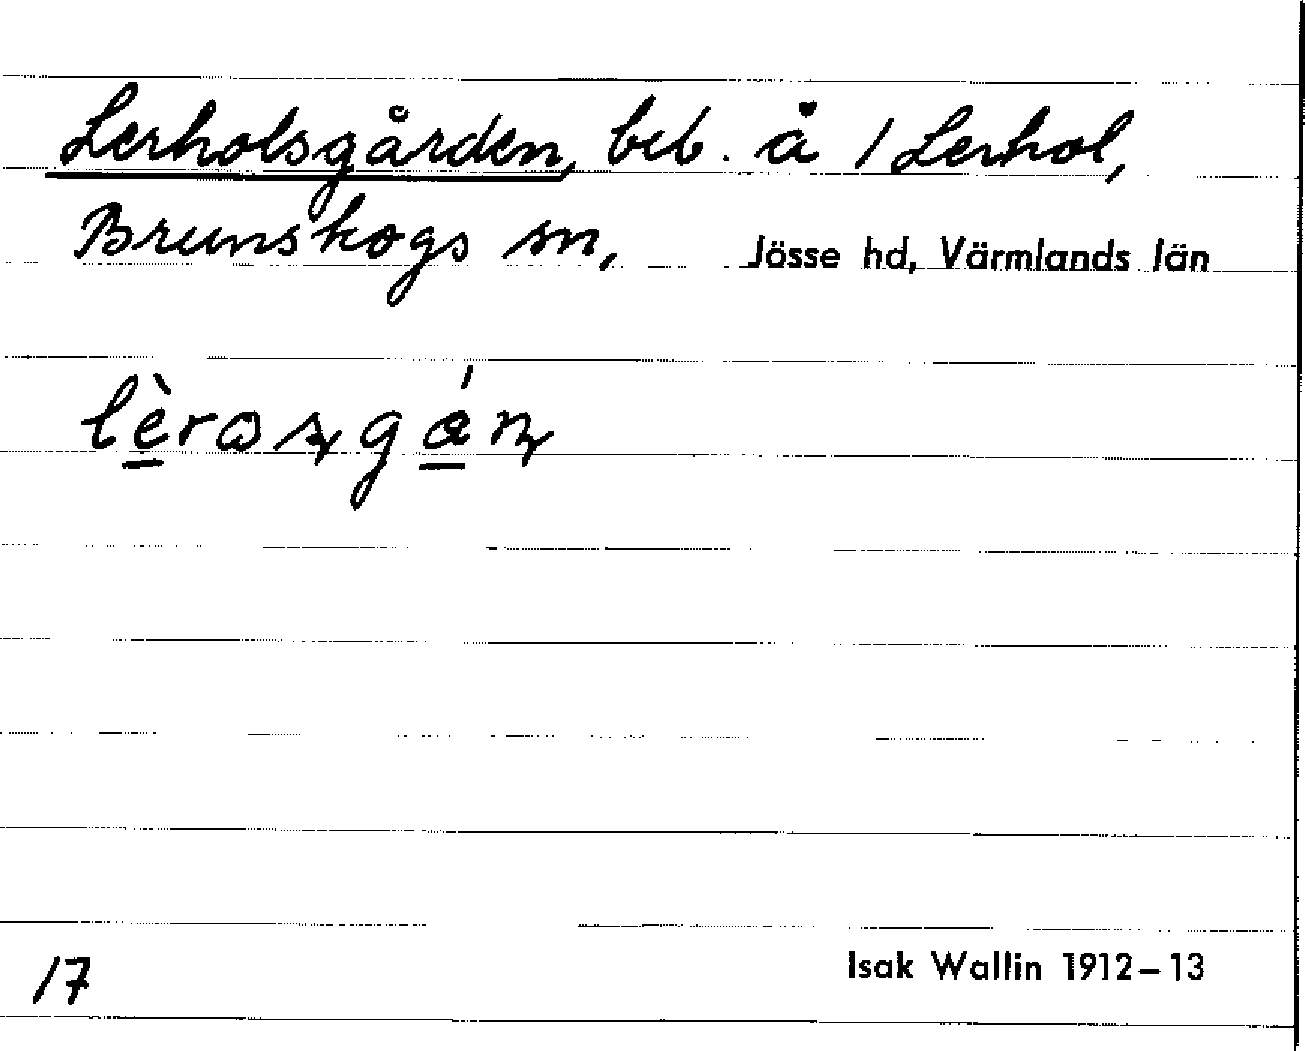 Lerholsgården, beb. å 1 Lerhol,
Brunskogs sn, Jösse hd, Värmlands län
lè̱rɷʂgá̱ɳ
17
Isak Wallin 1912–13